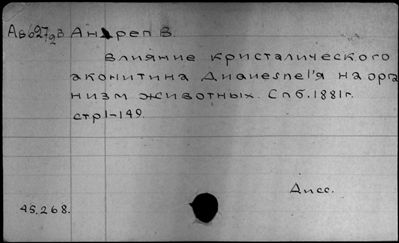 Анđреп В.
Влияние кристалического
аконитина Дианesnel'я на орга
низм животных. Спб. 1881г.
стр 1-149.
Дисс.
45.268.